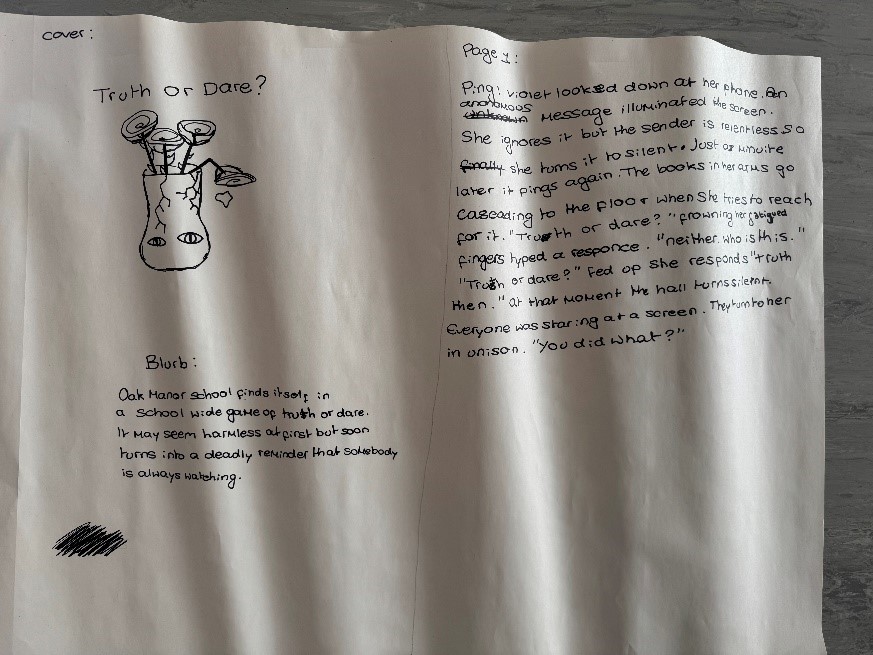 cover:
Truth or Dare?
Blurb:
Oak Manor school finds itself in
a school wide game of truth or dare.
It may seem harmless at first but soon
turns into a deadly reminder that somebody
is always watching.
Page 1:
Ping! violet looked down at her phone. An
anonomous
unknown message illuminated the screen.
She ignores it but the sender is relentless so
finally she turns it to silent. Just a minuite
later it pings again. The books in her arms go
cascading to the floor when she tries to reach
for it. "Truth or dare?" frowning her fatigued
fingers typed a responce. "neither. who is this."
"Truth or dare?" Fed op she responds "truth
then." at that moment the hall turns silent.
Everyone was staring at a screen. They turn to her
in unison. "You did what?"